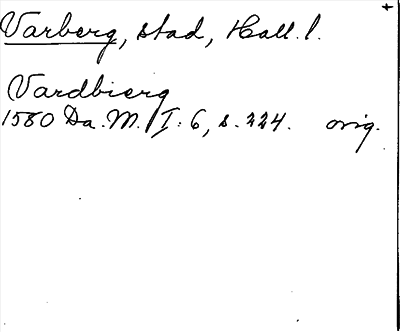 Varberg, stad, Hall. l.
Vardbierg
1580 Da. M. I: 6, s. 224. orig.